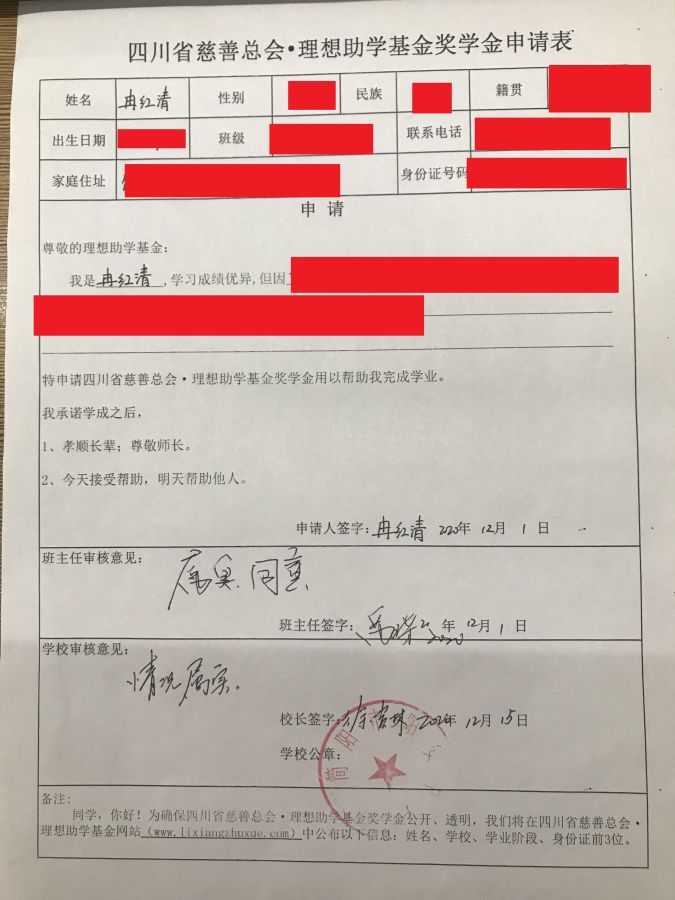 四川省慈善总会•理想助学基金奖学金申请表
姓名 冉红清 性别 民族 籍贯
出生日期 班级 联系电话
家庭住址 身份证号码
申 请
尊敬的理想助学基金:
我是 冉红清 ,学习成绩优异,但因
特申请四川省慈善总会•理想助学基金奖学金用以帮助我完成学业。
我承诺学成之后,
1、孝顺长辈; 尊敬师长。
2、今天接受帮助, 明天帮助他人。
申请人签字: 冉红清 2020年 12月 1 日
班主任审核意见:
属实. 同意
班主任签字: 2020 年 12月 1 日
学校审核意见:
情况属实。
校长签字: 2020年 12月 15日
学校公章:
简阳
备注:
同学, 你好! 为确保四川省慈善总会•理想助学基金奖学金公开、透明, 我们将在四川省慈善总会•
理想助学基金网站(www.lixiangzhuxue.com)中公布以下信息: 姓名、学校、学业阶段、身份证前3位。